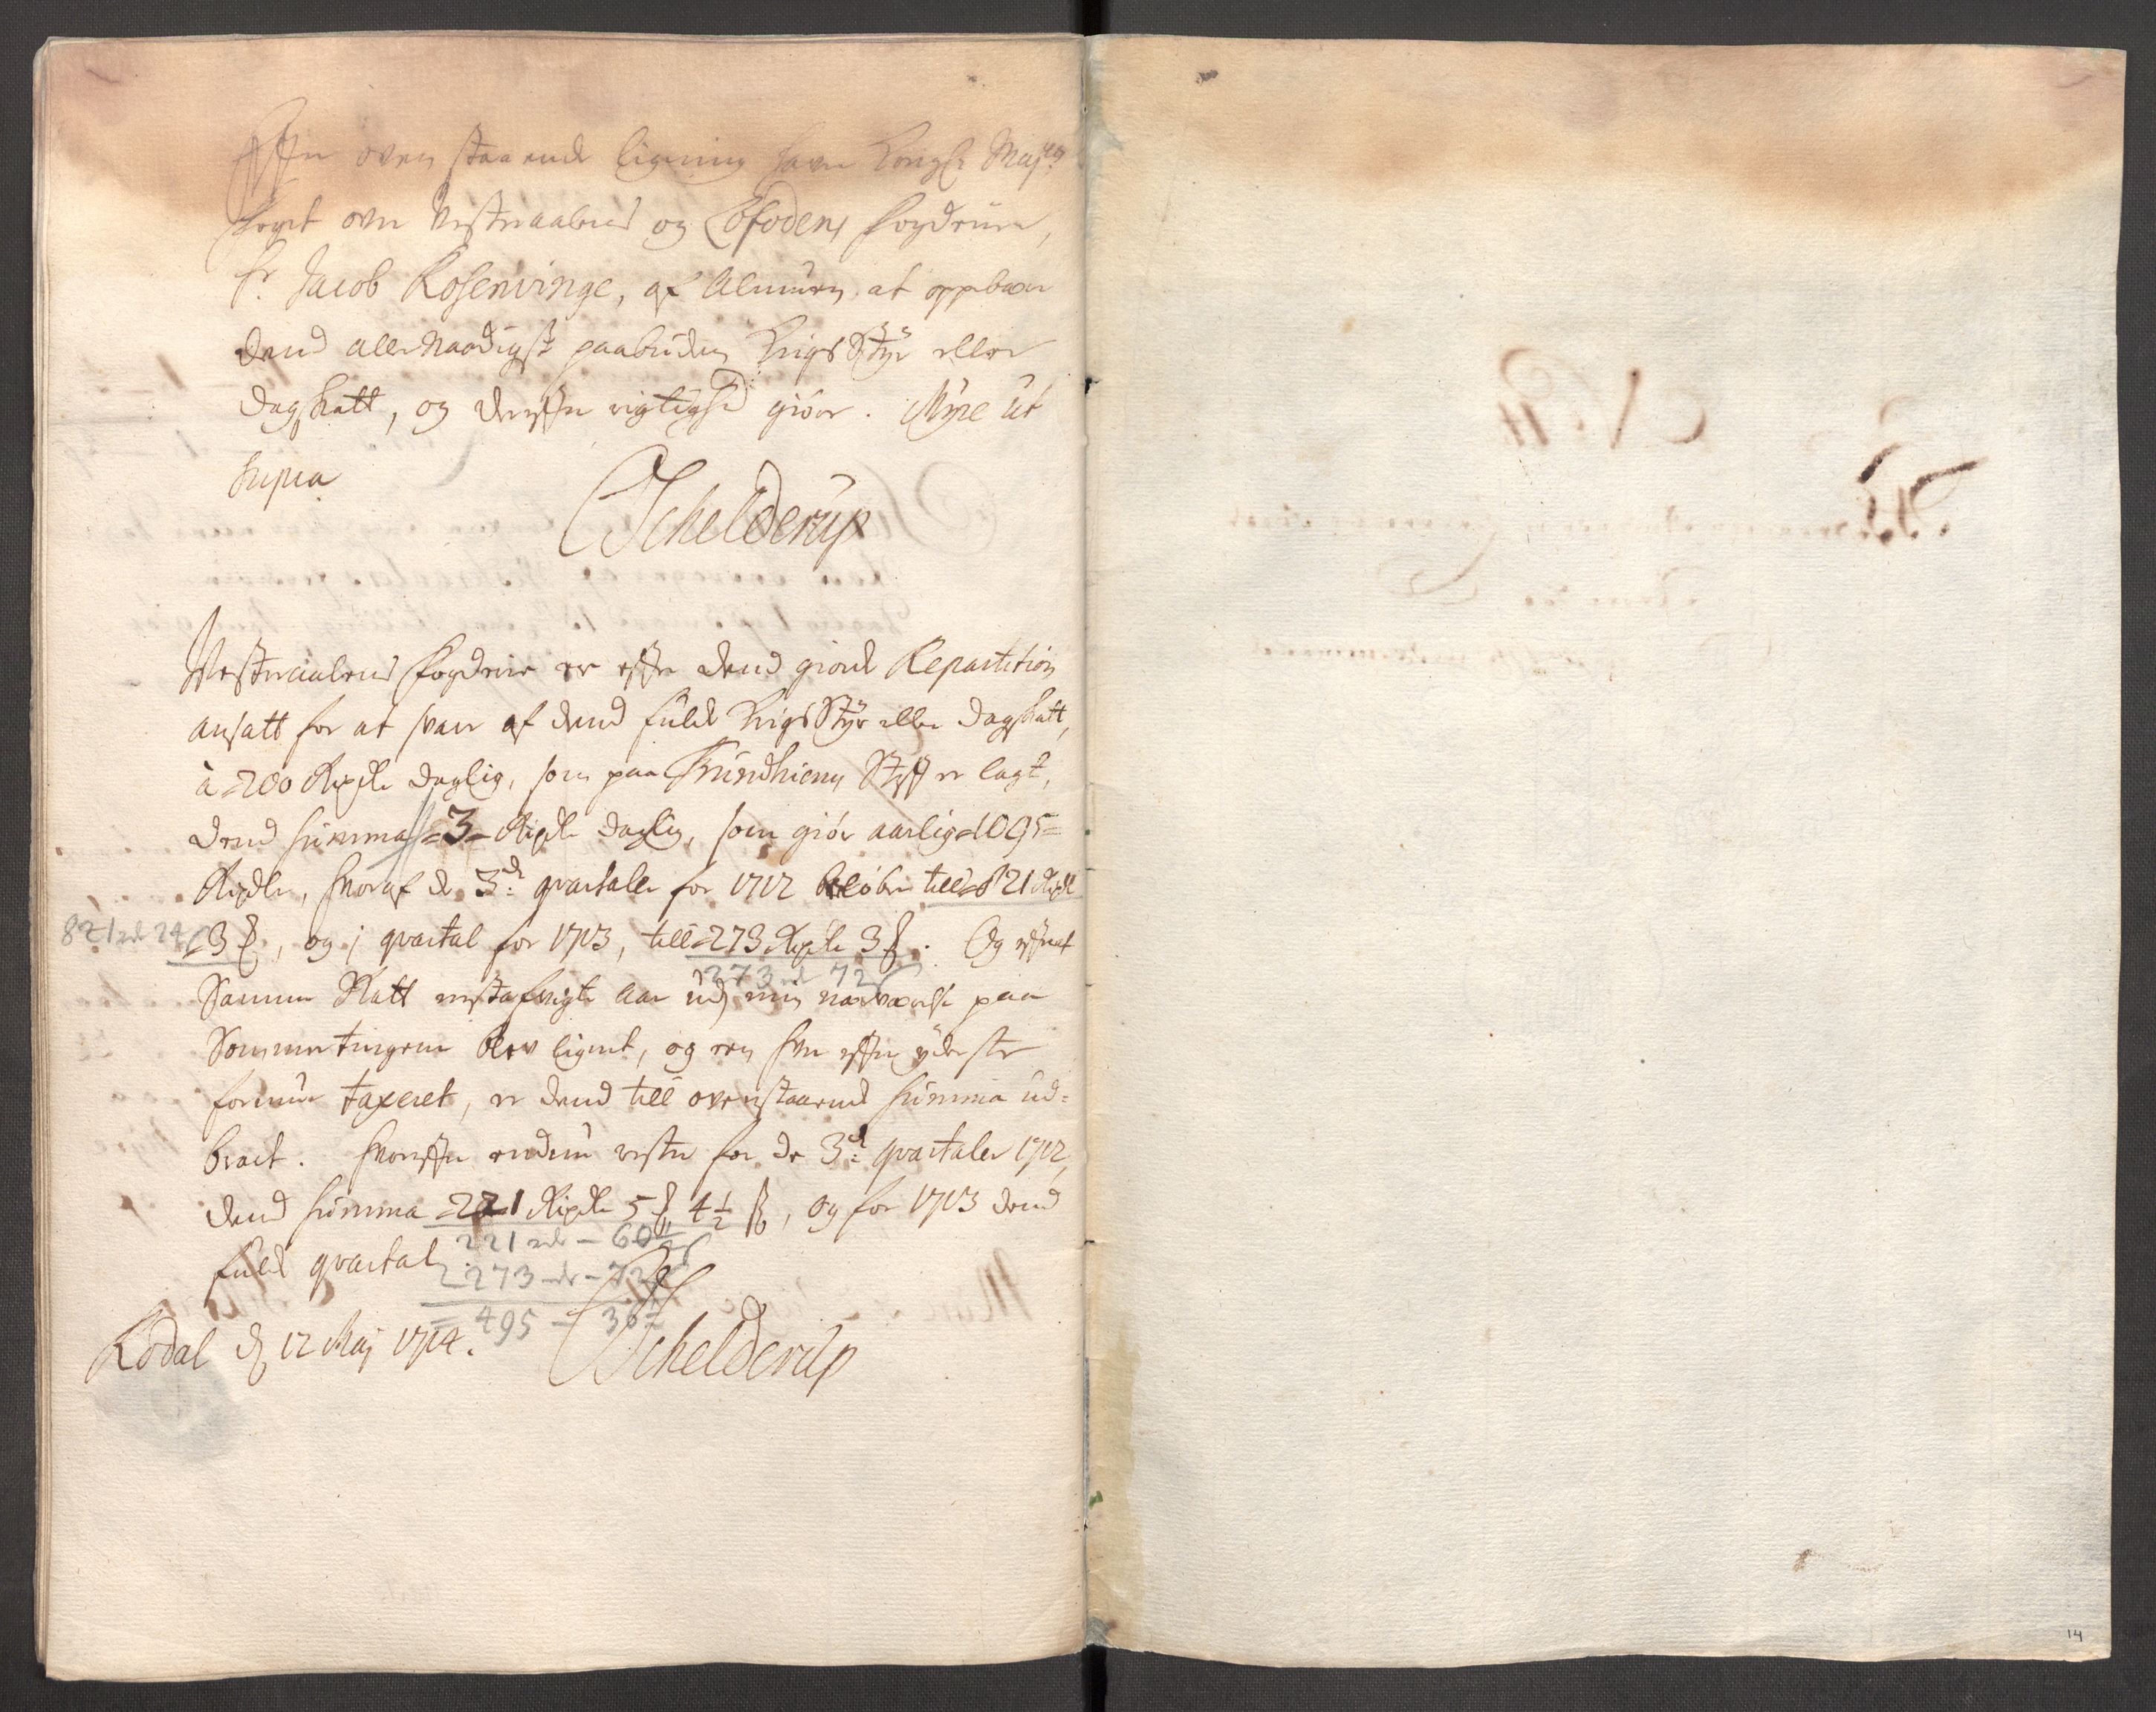 Effter oven staaende ligning haver Kongl: Maj:ts
foget over Vesteraalens og Lofodens fogderier,
Sr. Jacob Rosenvinge, af Almuen at oppebære
dend allernaadigst paabudne Krigs Styr eller
dagskatt, og dereffter rigtighed giøre. Myre ut
supra
Schelderup
Vesteraalens fogderie er effter dend giorde Repartition
ansatt for at svare af dend fulde Krigs Styr eller dagskatt,
à 200 Rixdlr daglig, som paa Trundhiems Stifft er lagt,
dend summa =3= Rixdlr daglig, som giør aarlig =1095=
Rixdlr, hvoraf de 3de qvartaler for 1712 beløber till =821 Rixdlr
821 rdr 24
3, og j qvartal for 1713, till =273 Rixdlr 3. Og efftersom
273 rdr 72
Samme Skatt nestafvigte Aar udj min nærværelse paa
Sommertingene blev lignet, og en hver effter yderste
formue taxeret, er dend till ovenstaaende summa ud-
bract. Hvoreffter endnu rester for de 3de qvartaler 1712,
dend summa =221 Rixdlr 5 4½, og for 1713 dend
221 rdr - 60
fulde qvartal.
273 rdr - 72
= 495 - 36½
Rødal d 12 Maj 1714.
Schelderup
14